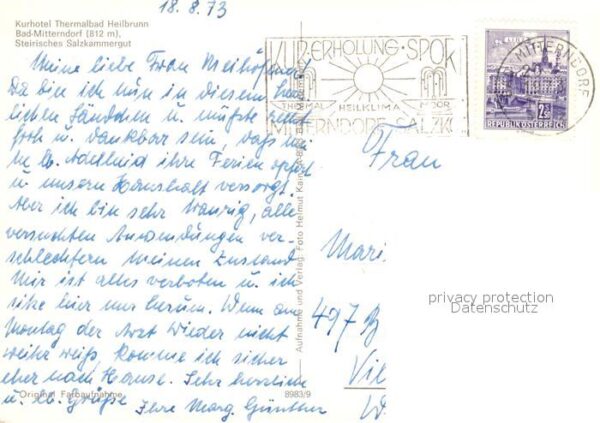 18. 8. 73
Kurhotel Thermalbad Heilbrunn
Bad-Mitterndorf (812 m),
Steirisches Salzkammergut
Meine liebe Frau
Da bin ich nun in diesem
lichen Ländchen u. müßte recht
froh u. dankbar sein, daß
lb. Adelheid ihre Ferien opfert
u. unsern Haushalt versorgt.
Aber ich bin sehr traurig, alle
versuchten Anwendungen ver-
schlechtern meinen Zustand
Mir ist alles verboten u. ich
sitze hier nur herum. Wenn am
Montag der Arzt wieder nicht
weiter weiß, komme ich sicher
eher nach Hause. Sehr herzlich
u. lb. Grüße Ihre Marg. Günther
Original Farbaufnahme
8983/9
Aufnahme und Verlag: Foto Helmut
KUR·ERHOLUNG·SPORT
THERMAL HEILKLIMA MOOR
MITTERNDORF SALZK
MITTERNDORF
2.50
REPUBLIK ÖSTERREICH
Frau
Mari
497
Vil
privacy protection
Datenschutz